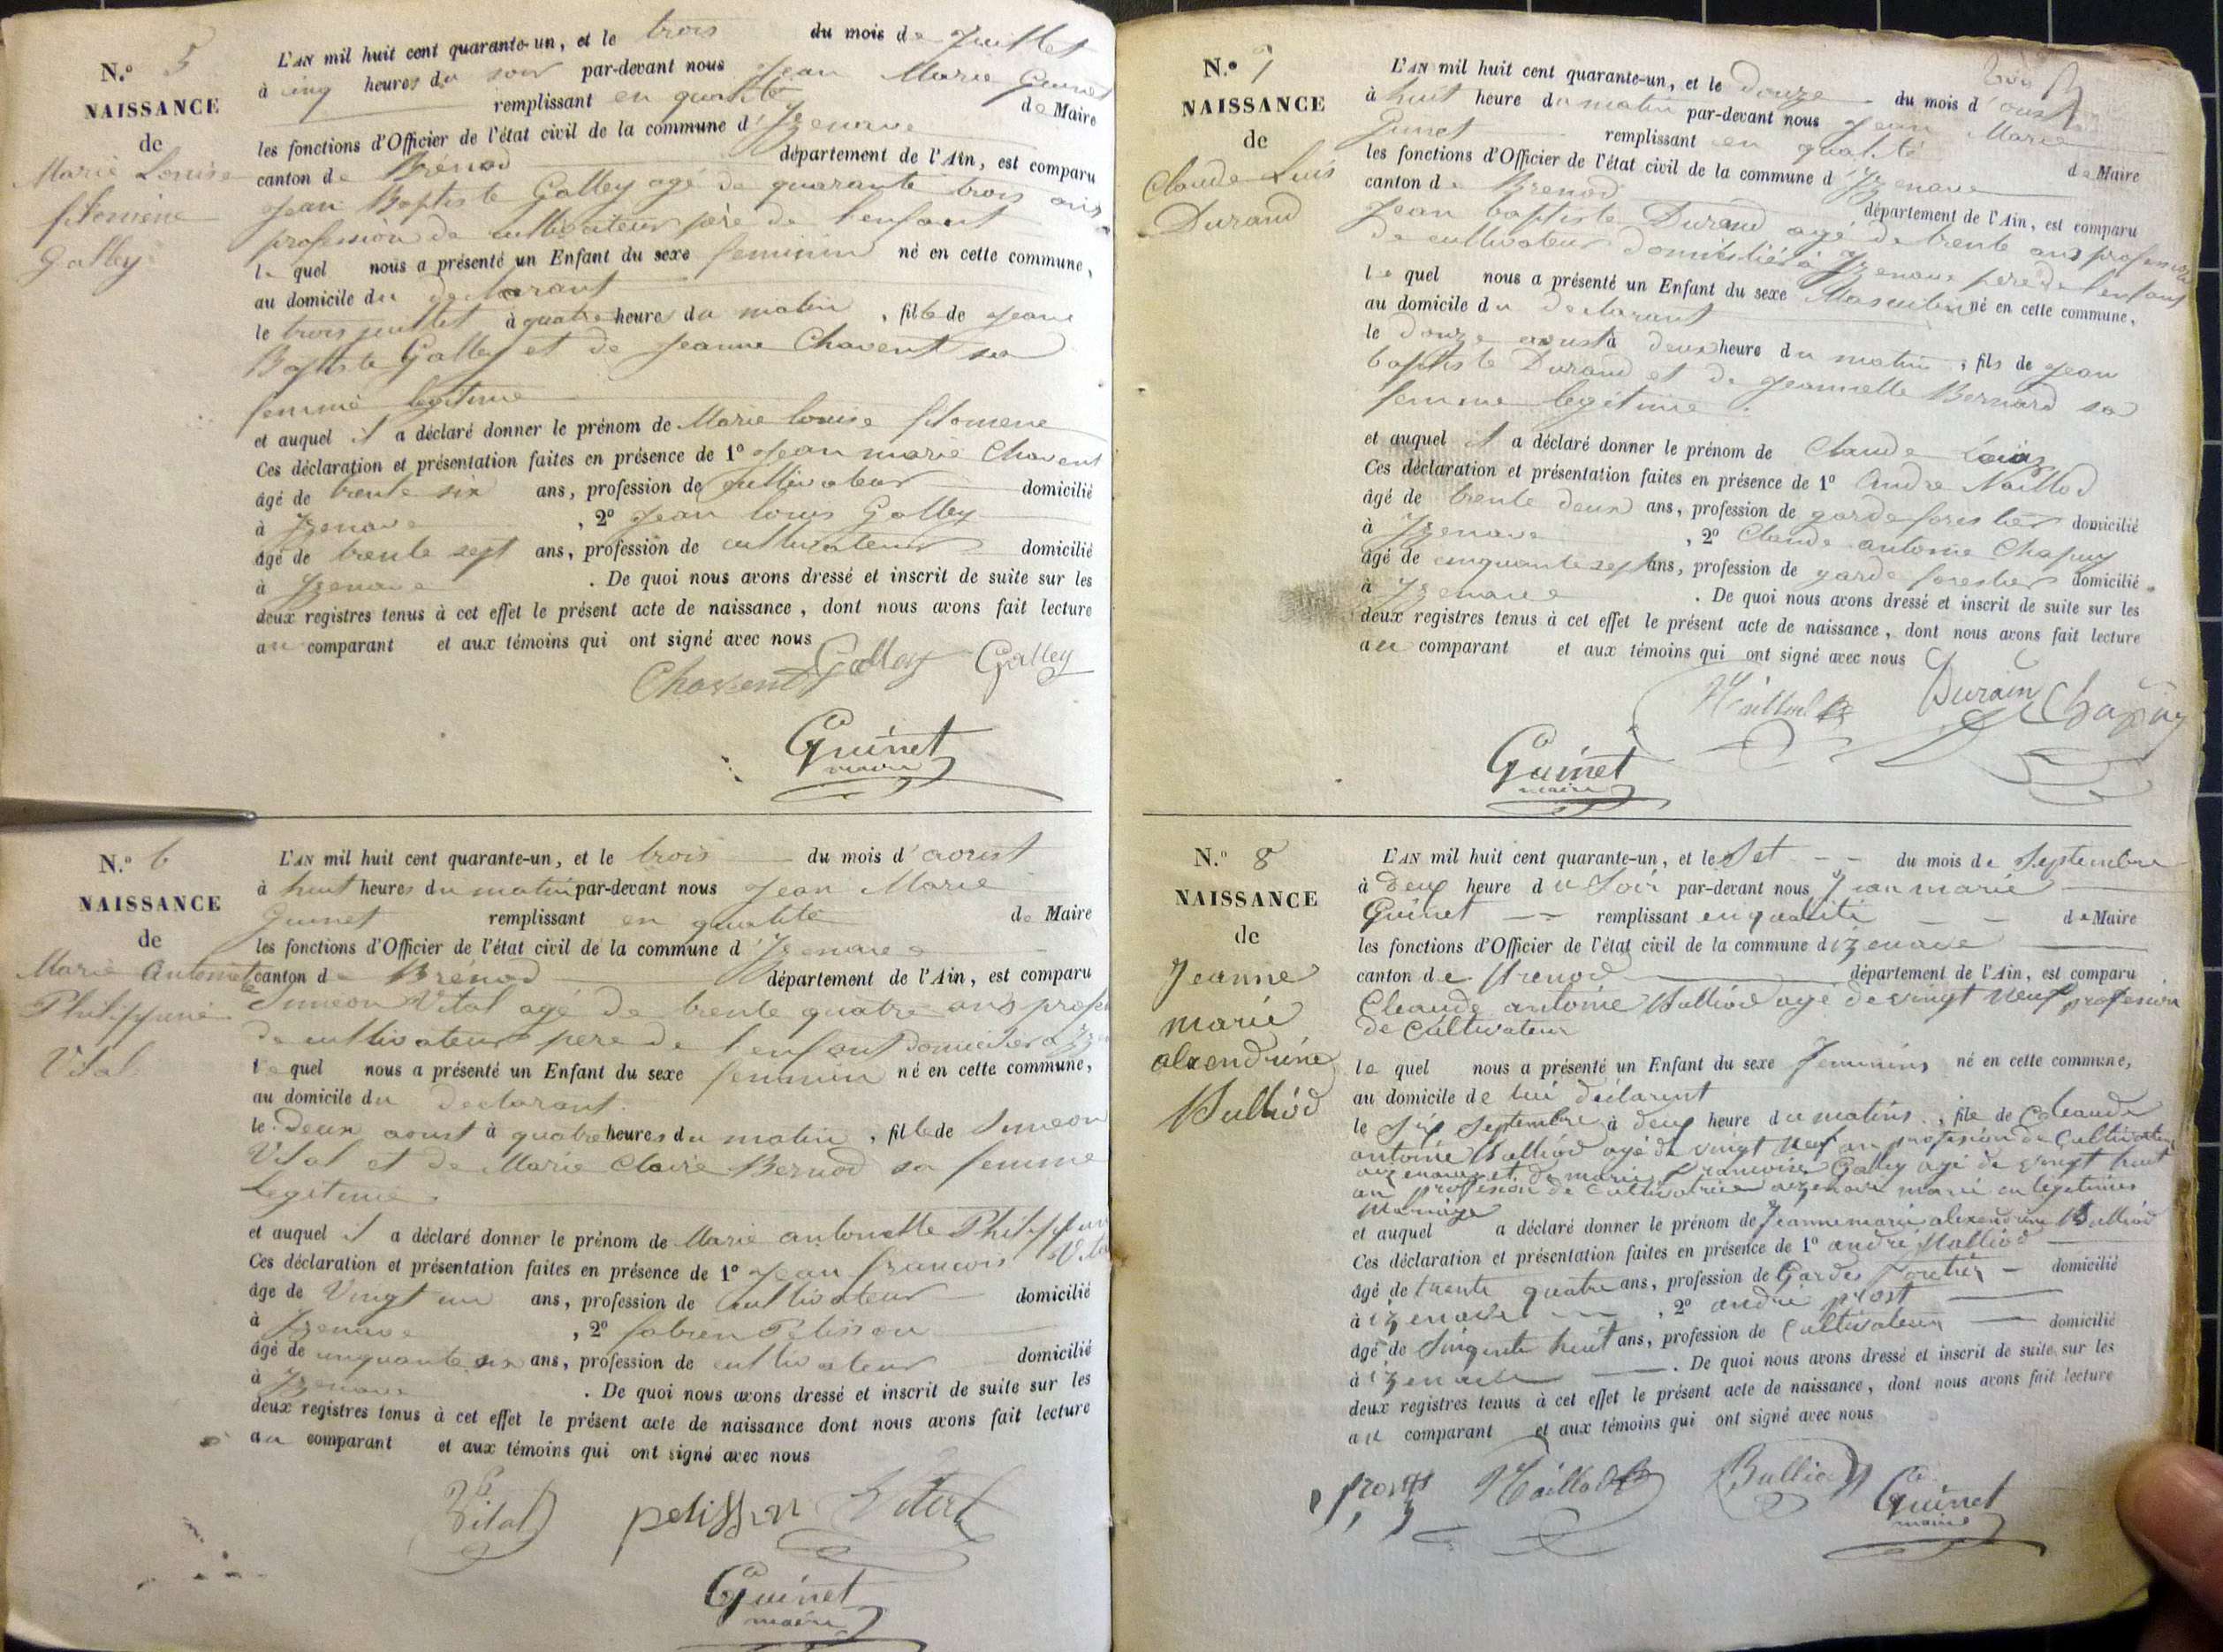 N.º 5
NAISSANCE
de
Marie Louise
filomène
Galley
L'AN mil huit cent quarante-un, et le trois du mois de Juillet
à cinq heures du soir par-devant nous Jean Marie Guinet
remplissant en qualité de Maire
les fonctions d'Officier de l'état civil de la commune d'Izenave
canton de Brénod département de l'Ain, est comparu
Jean Baptiste Galley agé de quarante trois ans
profession de cultivateur père de l'enfant
le quel nous a présenté un Enfant du sexe feminin né en cette commune,
au domicile du declarant
le trois juillet à quatre heures du matin, fille de Jean
Baptiste Galley et de Jeanne Chavent sa
femme legitime
et auquel il a déclaré donner le prénom de Marie louise filomene
Ces déclaration et présentation faites en présence de 1º Jean marie Chavent
âgé de trente six ans, profession de cultivateur domicilié
à Izenave, 2º Jean louis Galley
âgé de trente sept ans, profession de cultivateur domicilié
à Izenave. De quoi nous avons dressé et inscrit de suite sur les
deux registres tenus à cet effet le présent acte de naissance, dont nous avons fait lecture
au comparant et aux témoins qui ont signé avec nous
Galley Galley
Chavent
Guinet
maire
N.º 6
NAISSANCE
de
Marie Antoinette
Philippine
Vital
L'AN mil huit cent quarante-un, et le trois du mois d'aoust
à huit heures du matin par-devant nous Jean Marie
Guinet remplissant en qualité de Maire
les fonctions d'Officier de l'état civil de la commune d'Izenave
canton de Brénod département de l'Ain, est comparu
Simeon Vital agé de trente quatre ans profes
de cultivateur pere de l'enfant domicilié à Ize
le quel nous a présenté un Enfant du sexe feminin né en cette commune,
au domicile du declarant.
le deux aoust à quatre heures du matin, fille de Simeon
Vital et de Marie Claire Bernod sa femme
legitime.
et auquel il a déclaré donner le prénom de Marie antoinette Philippine
Ces déclaration et présentation faites en présence de 1º Jean francois Vital
âge de Vingt un ans, profession de Cultivateur domicilié
à Izenave, 2º fabien Pelisson
âgé de cinquante six ans, profession de cultivateur domicilié
à Izenave. De quoi nous avons dressé et inscrit de suite sur les
deux registres tenus à cet effet le présent acte de naissance dont nous avons fait lecture
au comparant et aux témoins qui ont signé avec nous
Vital pelisson Vital
Guinet
maire
N.º 7
NAISSANCE
de
Claude Luis
Durand
L'AN mil huit cent quarante-un, et le Douze du mois d'oust
à huit heure du matin par-devant nous Jean Marie
Guinet remplissant en qualité de Maire
les fonctions d'Officier de l'état civil de la commune d'Izenave
canton de Brenod département de l'Ain, est comparu
Jean baptiste Durand agé de trente ans profession
de cultivateur domicilié à Izenave pere de l'enfant
le quel nous a présenté un Enfant du sexe Masculin né en cette commune,
au domicile du declarant
le douze aoust à deux heure du matin, fils de Jean
baptiste Durand et de Jeannette Bernard sa
femme legitime.
et auquel il a déclaré donner le prénom de Claude Louis
Ces déclaration et présentation faites en présence de 1º Andre Naillod
âgé de trente deux ans, profession de garde forestier domicilié
à Izenave, 2º Claude antoine Chapuy
âgé de cinquante sept ans, profession de garde forestier domicilié
à Izenave. De quoi nous avons dressé et inscrit de suite sur les
deux registres tenus à cet effet le présent acte de naissance, dont nous avons fait lecture
au comparant et aux témoins qui ont signé avec nous
Naillod Durain Chapuy
Guinet
maire
N.º 8
NAISSANCE
de
Jeanne
marie
alexendrine
Bulliod
L'AN mil huit cent quarante-un, et le Set du mois de Septembre
à deux heure du Soir par-devant nous Jean marie
Guinet remplissant en qualité de Maire
les fonctions d'Officier de l'état civil de la commune d izenave
canton de Brenod département de l'Ain, est comparu
Cleaude antoine Bulliod agé de vingt neuf profession
de Cultivateur
le quel nous a présenté un Enfant du sexe feminins né en cette commune,
au domicile de lui déclarent
le six Septembre à deux heure du matins, file de Cleaude
antoine Bulliod agé de vingt neuf an profesion de Cultivateur
a izenave et de marie francoise Galley agé de vingt huit
an profesion de cultivatrice a izenave marié en legetimes
mariage
et auquel a déclaré donner le prénom de Jeanne marie alexendrine Bulliod
Ces déclaration et présentation faites en présence de 1º andré Nalliod
âgé de trente quatre ans, profession de Gardes foretier domicilié
à izenave, 2º andré prost
âgé de Sinquente huit ans, profession de Cultivateur domicilié
à izenave. De quoi nous avons dressé et inscrit de suite sur les
deux registres tenus à cet effet le présent acte de naissance, dont nous avons fait lecture
au comparant et aux témoins qui ont signé avec nous
prost Naillod Bulliod Guinet
maire